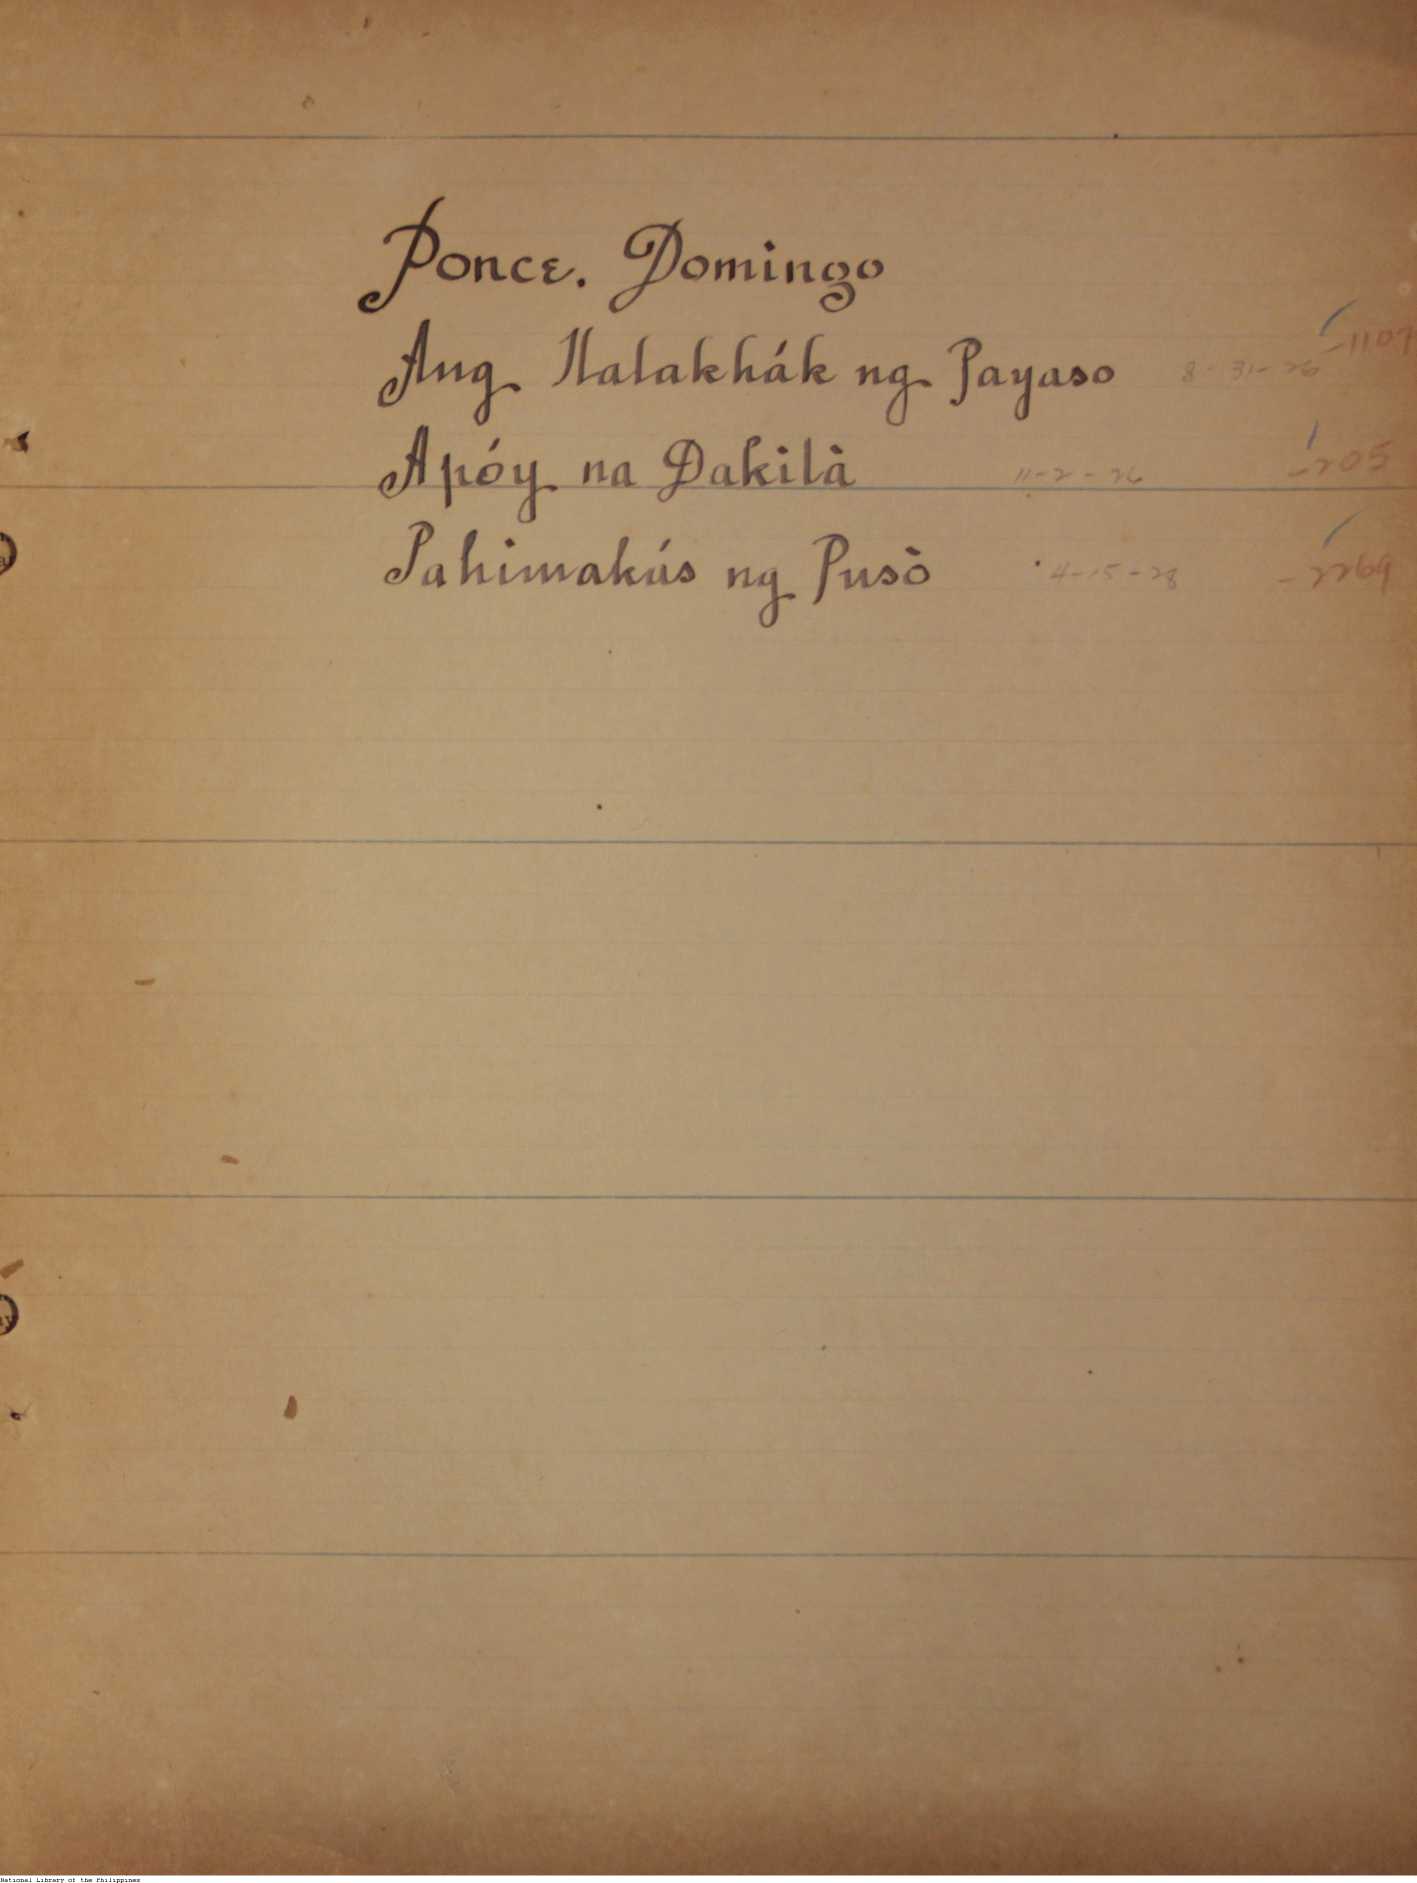 Ponce. Domingo
Ang Halakhák ng Payaso 8-31-26 -1107
Apóy na Dakilà 11-2-26 -205
Pahimakás ng Pusò 4-15-28 -2269
National Library of the Philippines